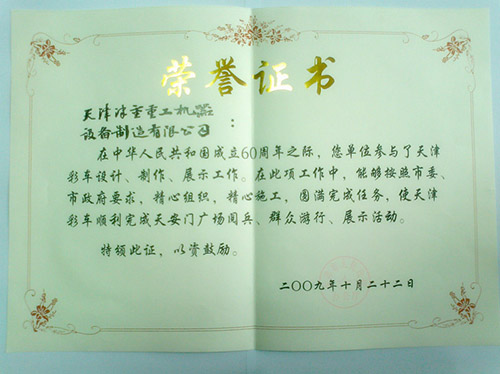 荣誉证书
天津
重工机器
设备制造有限公司：
在中华人民共和国成立60周年之际，您单位参与了天津
彩车设计、制作、展示工作。在此项工作中，能够按照市委、
市政府要求，精心组织，精心施工，圆满完成任务，使天津
彩车顺利完成天安门广场阅兵、群众游行、展示活动。
特颁此证，以资鼓励。
二〇〇九年十月二十二日